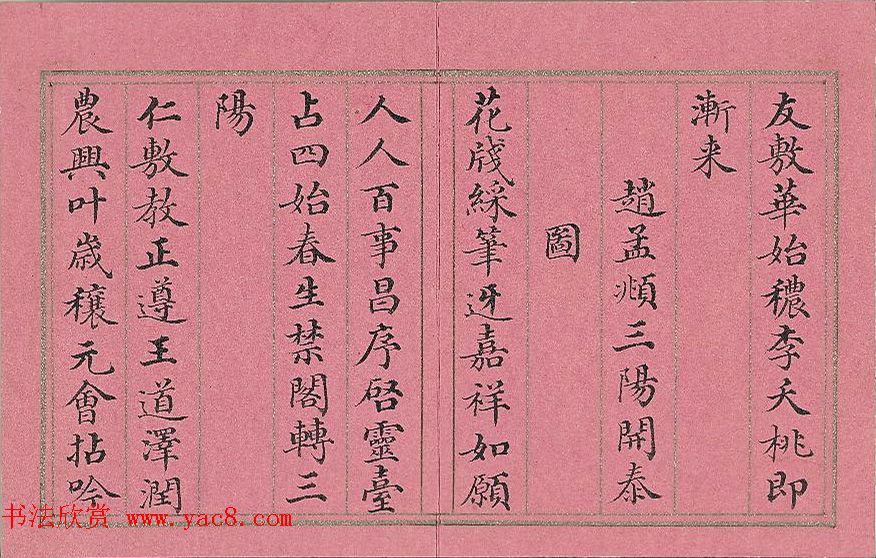 友敷華始穠李夭桃即
漸来
趙孟頫三陽開泰
圖
花牋綵筆迓嘉祥如願
人人百事昌序啓靈臺
占四始春生禁閣轉三
陽
仁敷教正遵王道澤潤
農興叶歲穰元會拈吟
书法欣赏 www.yac8.com